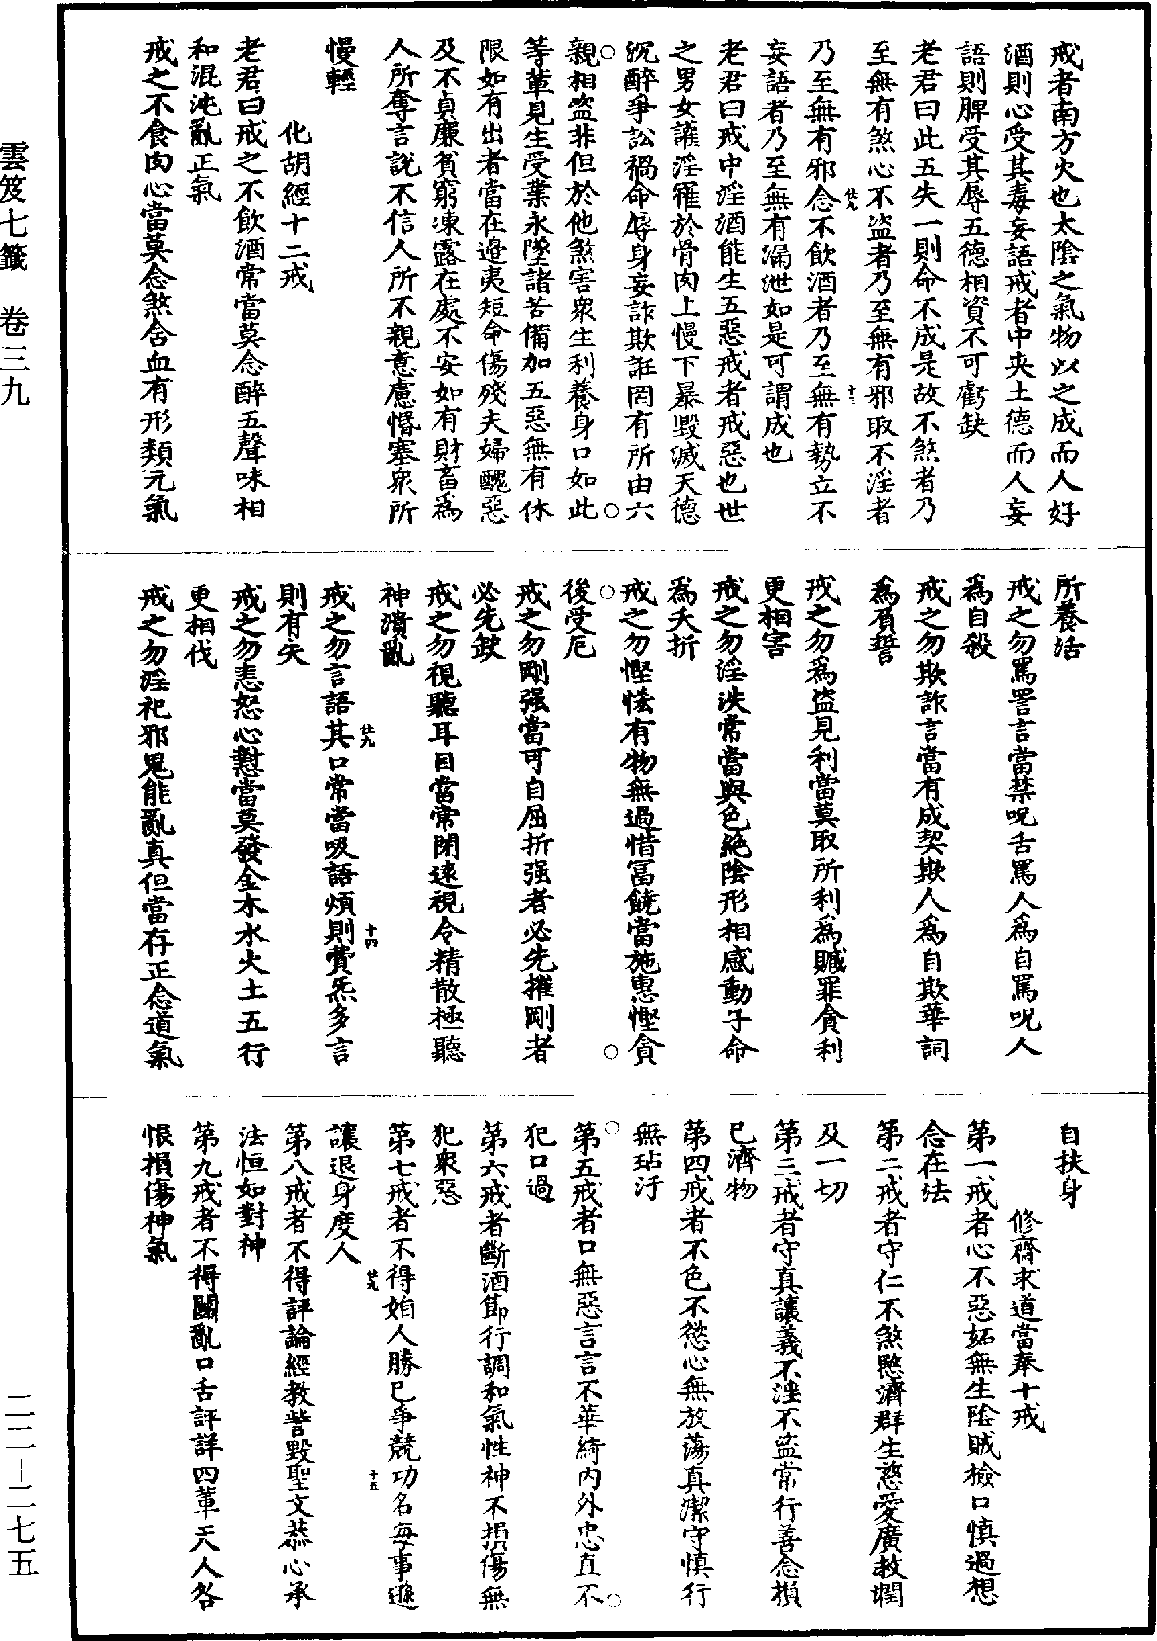 戒者南方火也太陰之氣物以之成而人好
酒則心受其毒妄語戒者中央土德而人妄
語則脾受其辱五德相資不可虧缺
老君曰此五失一則命不成是故不煞者乃
至無有煞心不盜者乃至無有邪取不淫者
乃至無有邪念不飲酒者乃至無有勢立不
妄語者乃至無有漏泄如是可謂成也
老君曰戒中淫酒能生五惡戒者戒惡也世
之男女讙淫羅於骨肉上慢下暴毀滅天德
沉醉爭訟禍命辱身妄詐欺誑罔有所由六
親相盜非但於他煞害衆生利養身口如此
等輩見生受業永墜諸苦備加五惡無有休
限如有出者當在邊夷短命傷殘夫婦醜惡
及不貞廉貧窮凍露在處不安如有財畜爲
人所奪言說不信人所不親意慮惛塞衆所
慢輕
化胡經十二戒
老君曰戒之不飲酒常當莫念醉五聲味相
和混沌亂正氣
戒之不食肉心當莫念煞含血有形類元氣
所養活
戒之勿罵詈言當禁呪舌罵人爲自罵呪人
爲自殺
戒之勿欺詐言當有成契欺人爲自欺華詞
爲負誓
戒之勿爲盜見利當莫取所利爲贓罪貪利
更相害
戒之勿淫泆常當與色絕陰形相感動子命
爲夭折
戒之勿慳恡有物無過惜富饒當施惠慳貪
後受厄
戒之勿剛强當可自屈折强者必先摧剛者
必先缺
戒之勿視聽耳目當常閉遠視令精散極聽
神潰亂
戒之勿言語其口常當吸語煩則費炁多言
則有失
戒之勿恚怒心懟當莫發金木水火土五行
更相伐
戒之勿淫祀邪鬼能亂真但當存正念道氣
自扶身
修齋求道當奉十戒
第一戒者心不惡妬無生陰賊檢口慎過想
念在法
第二戒者守仁不煞愍濟群生慈愛廣救潤
及一切
第三戒者守真讓義不淫不盜常行善念損
已濟物
第四戒者不色不慾心無放蕩真潔守慎行
無玷汙
第五戒者口無惡言言不華綺內外忠直不
犯口過
第六戒者斷酒節行調和氣性神不損傷無
犯衆惡
第七戒者不得妬人勝已爭競功名每事遜
讓退身度人
第八戒者不得評論經教訾毀聖文恭心承
法恒如對神
第九戒者不得鬬亂口舌評詳四輩天人咎
恨損傷神氣
雲笈七籤　卷三九
二二－二七五